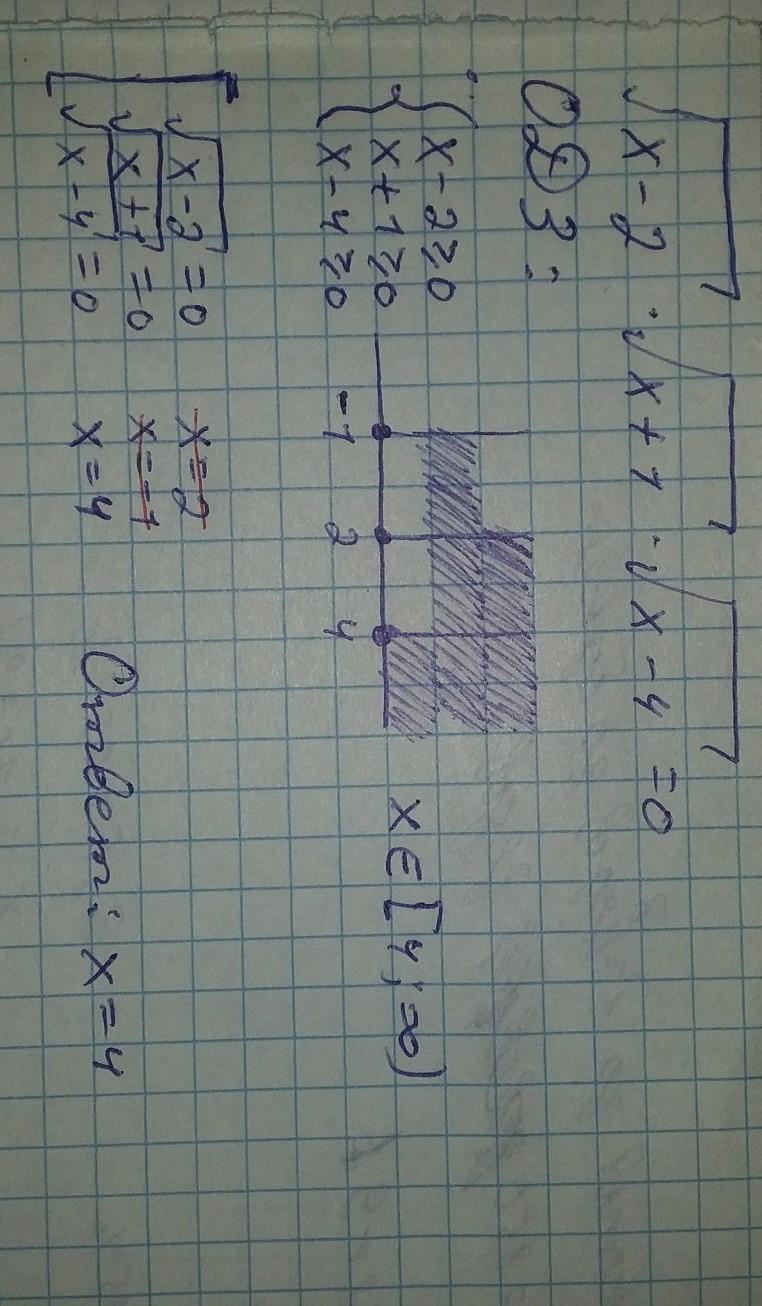 √x-2 · √x+1 · √x-4 = 0
ОДЗ:
x-2≥0
x+1≥0
x-4≥0
-1 2 4
x∈[4;∞)
√x-2 = 0 x=2
√x+1 = 0 x=-1
√x-4 = 0 x=4
Ответ: x=4